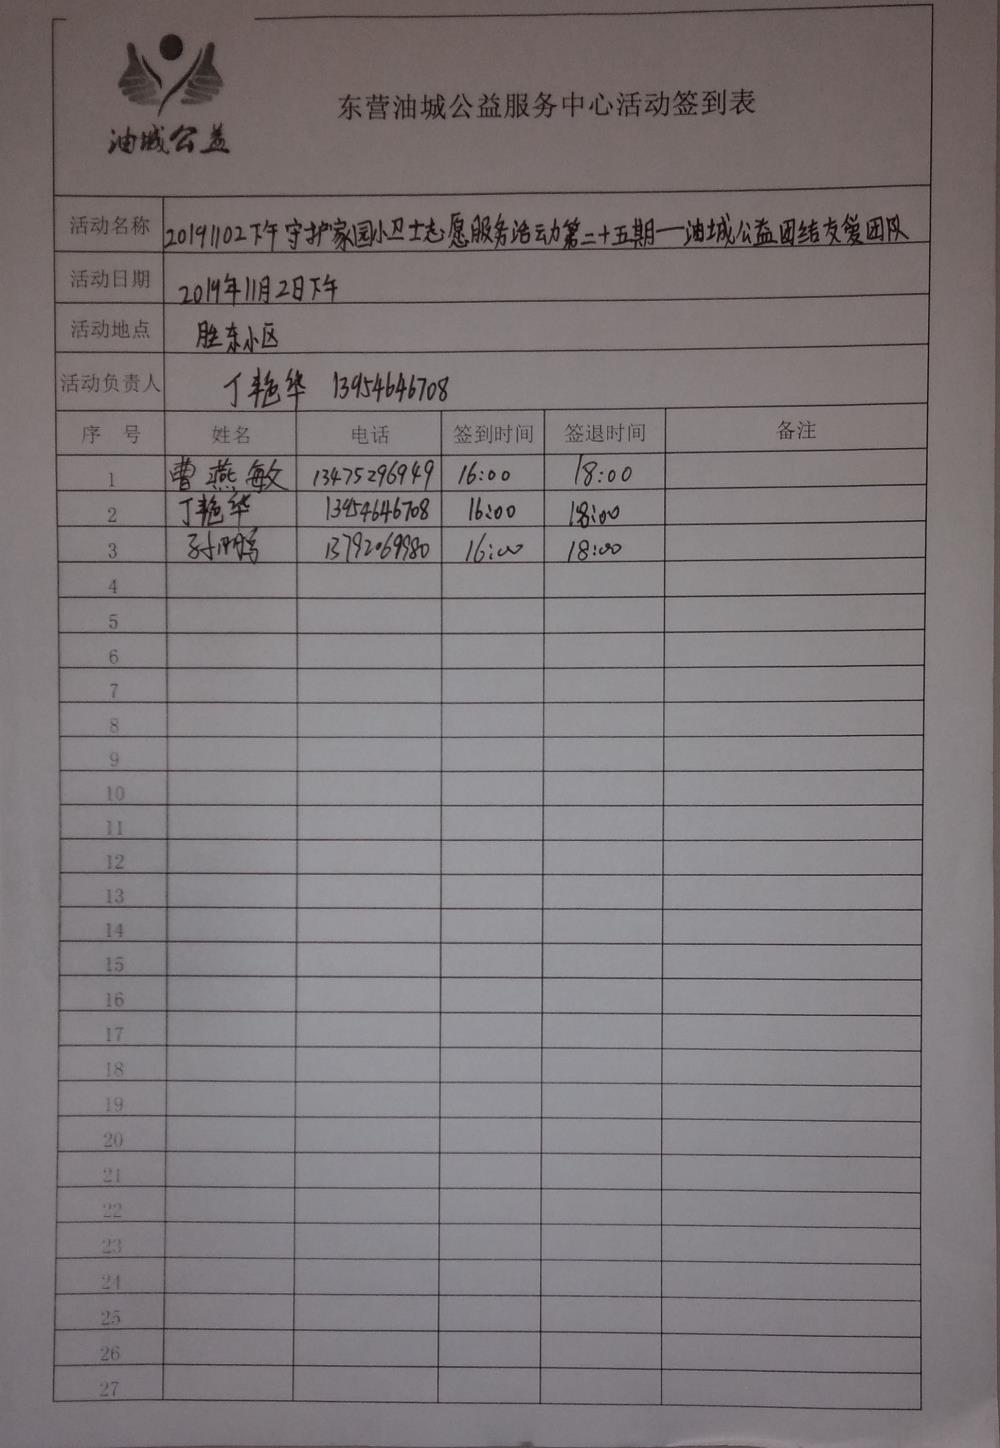 油城公益
东营油城公益服务中心活动签到表
活动名称 20191102下午守护家园小卫士志愿服务活动第二十五期——油城公益团结友爱团队
活动日期 2019年11月2日下午
活动地点 胜东小区
活动负责人 丁艳华 13954646708
序 号 姓名 电话 签到时间 签退时间 备注
1 曹燕敏 13475296949 16:00 18:00
2 丁艳华 13954646708 16:00 18:00
3 孙 13792069980 16:00 18:00
4
5
6
7
8
9
10
11
12
13
14
15
16
17
18
19
20
21
22
23
24
25
26
27